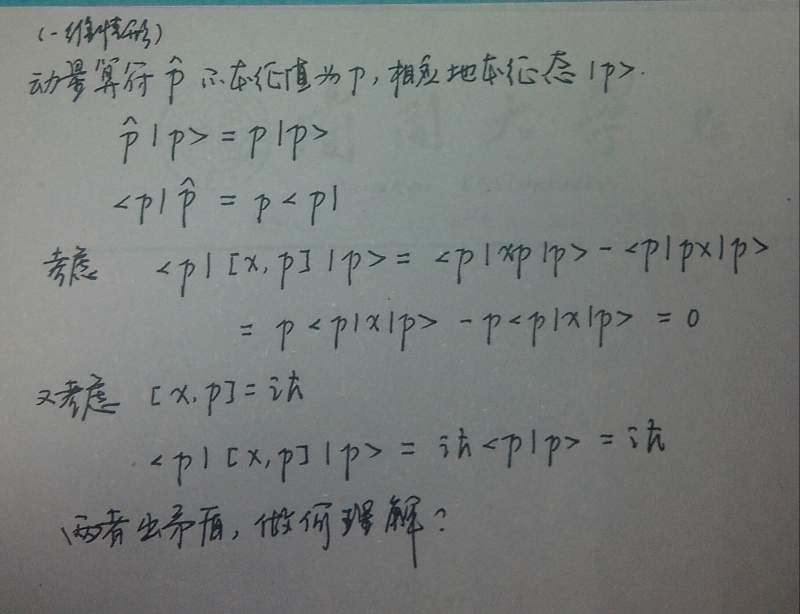 (一维情形)
动量算符 p̂ 的本征值为 p, 相应地本征态 |p>.
p̂ |p> = p |p>
<p| p̂ = p <p|
考虑 <p| [x, p] |p> = <p|xp|p> - <p|px|p>
= p <p|x|p> - p<p|x|p> = 0
又考虑 [x, p] = iħ
<p| [x, p] |p> = iħ <p|p> = iħ
两者出矛盾, 做何理解?